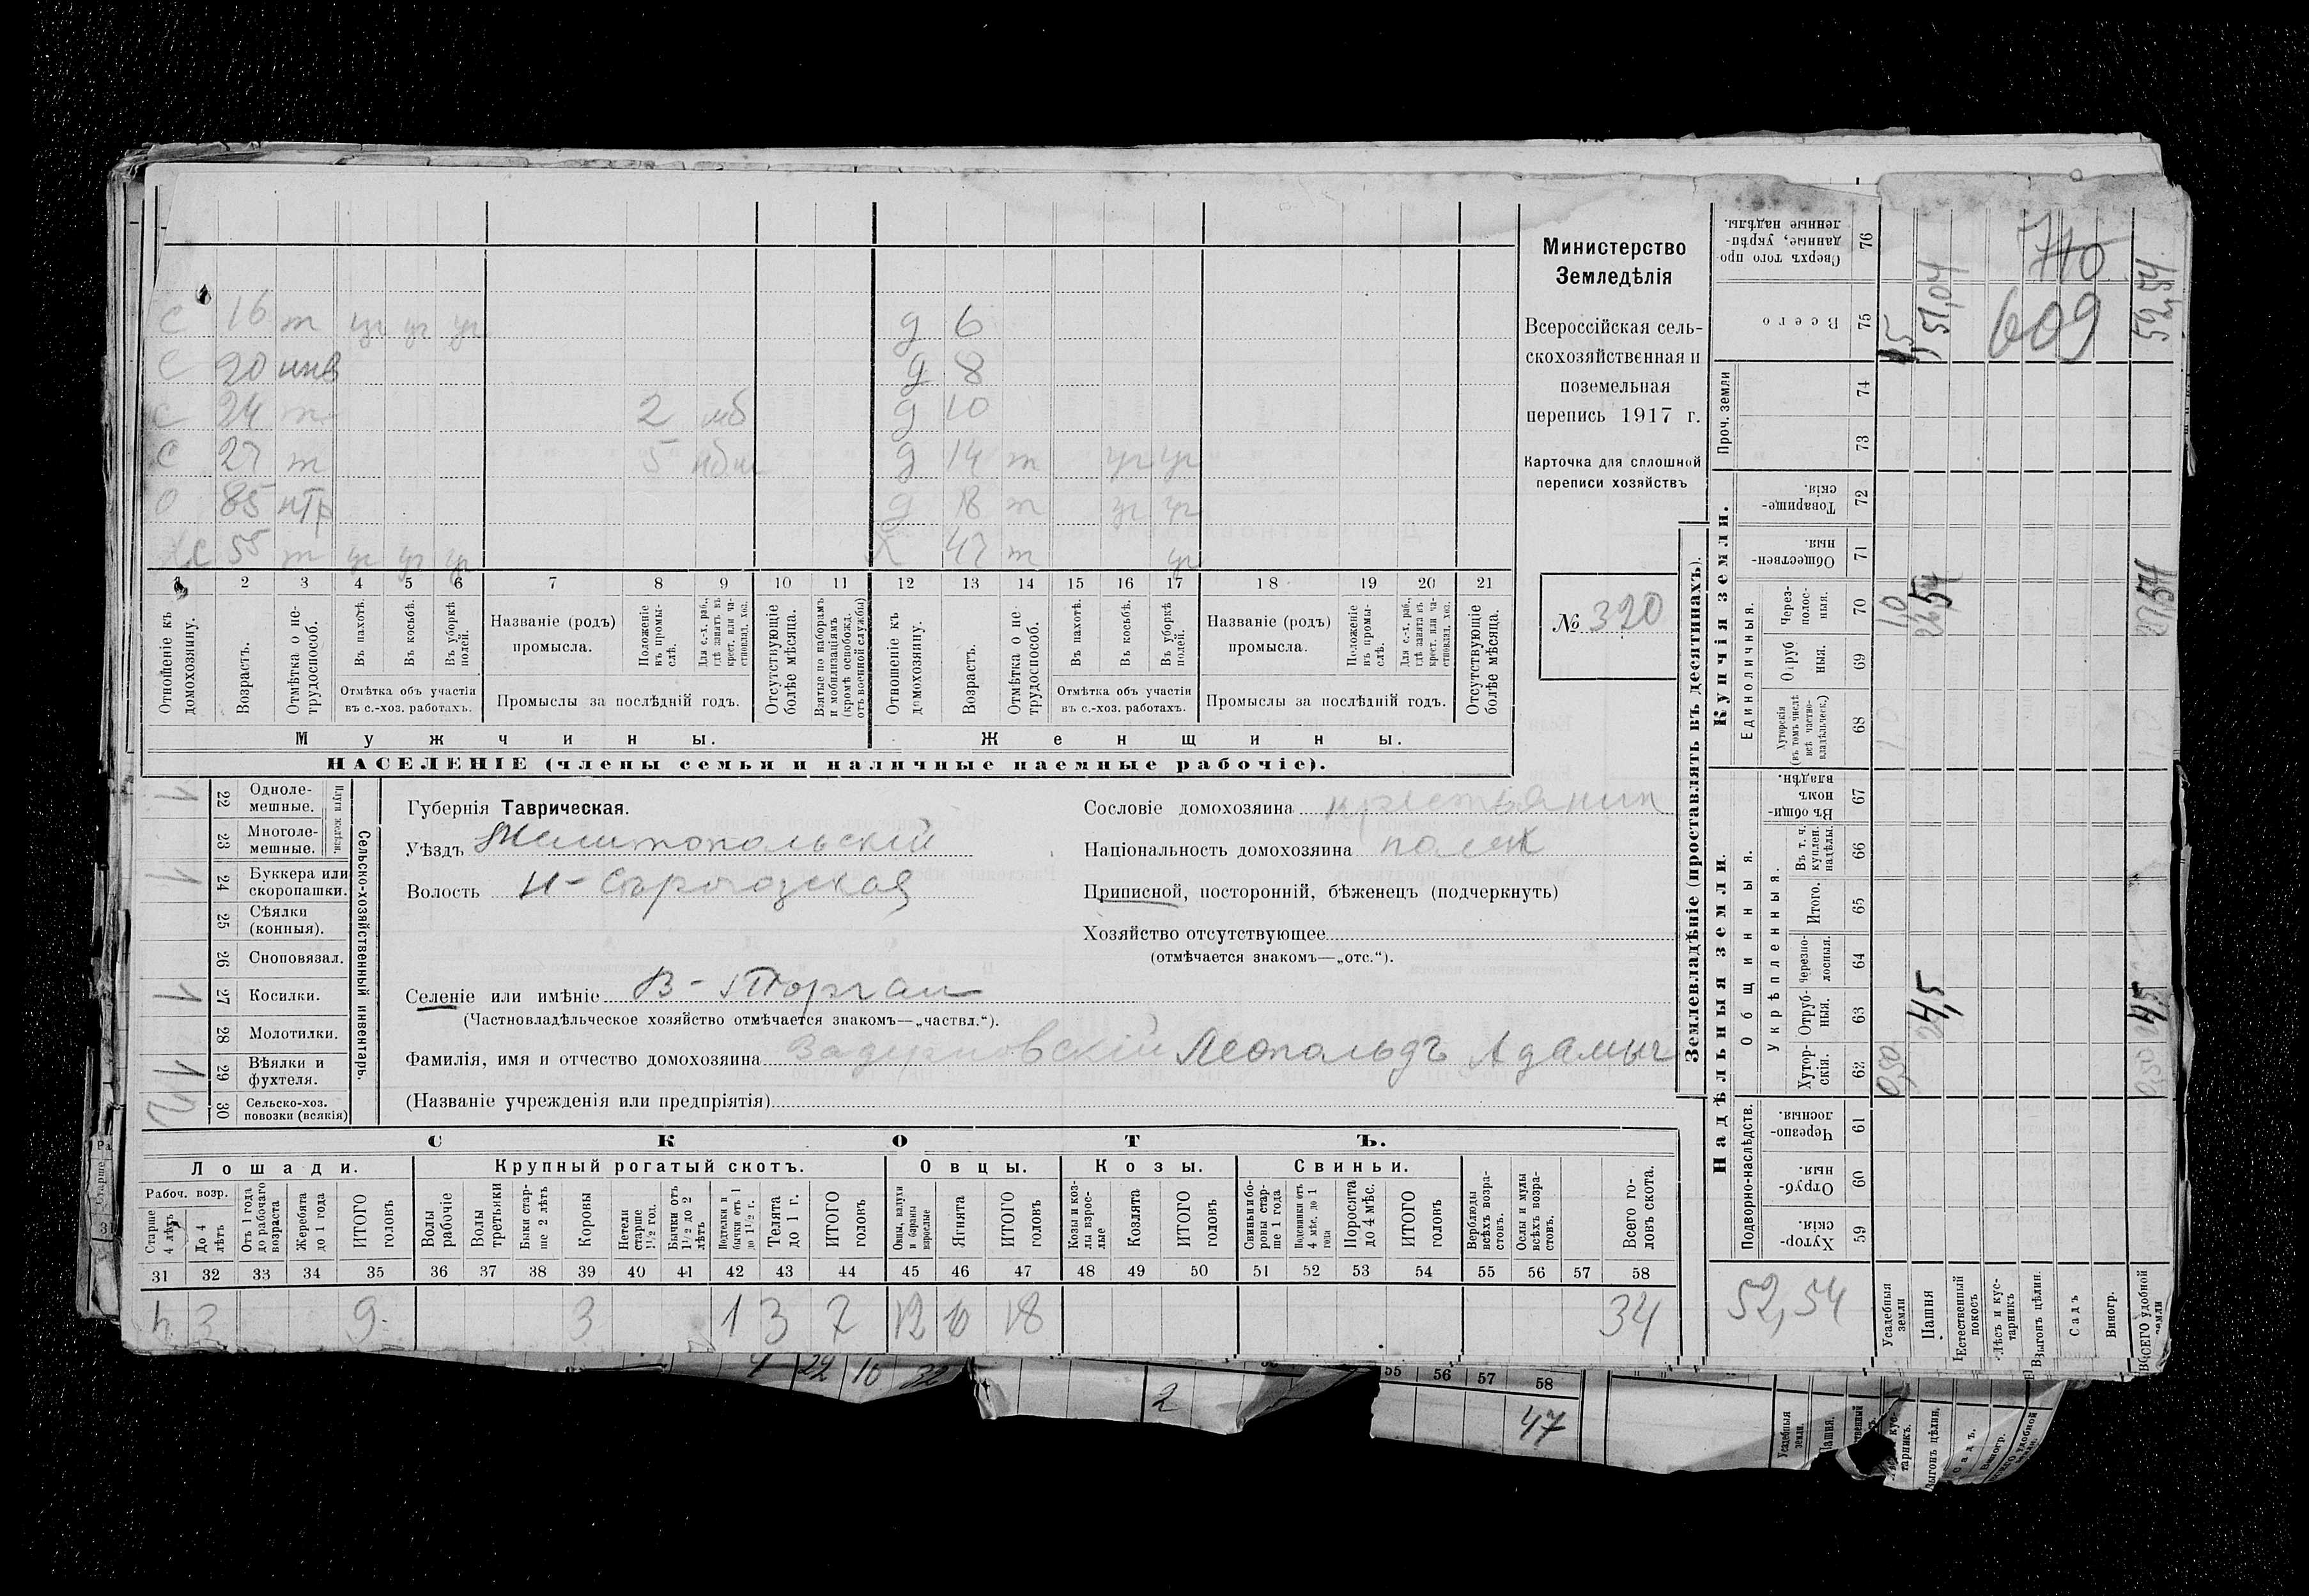 С 16 т уч уч уч д 6
С 20 инв д 8
С 24 т 2 мб д 10
С 27 т 5 д 14 т уч уч
О 85 нтр д 18 т уч уч
ХС 55 т уч уч уч Х 47 т уч
1 2 3 4 5 6 7 8 9 10 11 12 13 14 15 16 17 18 19 20 21
Отношеніе къ домохозяину.
Возрастъ.
Отмѣтка о нетрудоспособ.
Въ пахотѣ.
Въ косьбѣ.
Въ уборкѣ полей.
Отмѣтка объ участіи въ с.-хоз. работахъ.
Названіе (родъ) промысла.
Положеніе въ промыслѣ.
Для с.-х. раб., гдѣ занятъ въ крест. или частновлад. хоз.
Промыслы за послѣдній годъ.
Отсутствующіе болѣе мѣсяца.
Взятые по наборамъ и мобилизаціямъ (кромѣ освобожд. отъ военной службы)
Отношеніе къ домохозяину.
Возрастъ.
Отмѣтка о нетрудоспособ.
Въ пахотѣ.
Въ косьбѣ.
Въ уборкѣ полей.
Отмѣтка объ участіи въ с.-хоз. работахъ.
Названіе (родъ) промысла.
Положеніе въ промыслѣ.
Для с.-х. раб., гдѣ занята въ крест. или частновлад. хоз.
Промыслы за послѣдній годъ.
Отсутствующіе болѣе мѣсяца.
Мужчины.
Женщины.
НАСЕЛЕНІЕ (члены семьи и наличные наемные рабочіе).
Министерство
Земледѣлія
Всероссійская сель-
скохозяйственная и
поземельная
перепись 1917 г.
Карточка для сплошной
переписи хозяйствъ
№ 320
Сельско-хозяйственный инвентарь.
Плуги желѣзн.
1 22 Однолемешные.
23 Многолемешные.
1 24 Буккера или скоропашки.
25 Сѣялки (конныя).
26 Сноповязал.
1 27 Косилки.
28 Молотилки.
1 29 Вѣялки и фухтеля.
2 30 Сельско-хоз. повозки (всякія)
Губернія Таврическая.
Уѣздъ Мелитопольскій
Волость Н-Сѣрогозская
Селеніе или имѣніе В-Торгаи
(Частновладѣльческое хозяйство отмѣчается знакомъ—„частвл.“).
Фамилія, имя и отчество домохозяина Леопольдъ Адамыч
(Названіе учрежденія или предпріятія)
Сословіе домохозяина крестьянин
Національность домохозяина поляк
Приписной, посторонній, бѣженец (подчеркнуть)
Хозяйство отсутствующее
(отмѣчается знакомъ—„отс.“).
СКОТЪ.
Лошади. Крупный рогатый скотъ. Овцы. Козы. Свиньи.
Рабоч. возр.
Старше 4 лѣтъ
До 4 лѣтъ
Отъ 1 года до рабочаго возраста
Жеребята до 1 года
ИТОГО головъ
Волы рабочіе
Волы третьяки
Быки старше 2 лѣтъ
Коровы
Нетели старше 1 1/2 год.
Бычки отъ 1 1/2 до 2 лѣтъ
Подтелки и бычки отъ 1 до 1 1/2 г.
Телята до 1 г.
ИТОГО головъ
Овцы, валухи и бараны взрослые
Ягнята
ИТОГО головъ
Козы и козлы взрослые
Козлята
ИТОГО головъ
Свиньи и боровы старше 1 года
Подсвинки отъ 4 мѣс. до 1 года
Поросята до 4 мѣс.
ИТОГО головъ
Верблюды всѣхъ возрастовъ.
Ослы и мулы всѣхъ возрастовъ.
Всего головъ скота.
31 32 33 34 35 36 37 38 39 40 41 42 43 44 45 46 47 48 49 50 51 52 53 54 55 56 57 58
3 9 3 1 3 7 12 18 34
Землевладѣніе (проставлять въ десятинахъ).
Надѣльныя земли.
Купчія земли.
Подворно-наслѣдств.
Общинныя.
Укрѣпленныя.
Единоличныя.
Проч. земли
59 Хуторскія.
60 Отрубныя.
61 Черезполосныя.
62 Хуторскія. 0,50 0,50
63 Отрубныя. 4,5 4,5
64 Черезполосныя.
65 Итого.
66 Въ т. ч. куплен. надѣлы.
67 Въ общинномъ владѣн.
68 Хуторскія (въ томъ числѣ всѣ частновладѣльческ.)
69 Отрубныя.
70 Черезполосныя. 54
71 Общественныя.
72 Товарищескія.
73
74
75 Всего 51,04 609 52,54
76 Сверхъ того проданные, укрѣпленные надѣлы. 710
52,54
Усадебныя земли
Пашня
Естественный покосъ
Лѣсъ и кустарникъ
Выгонъ цѣлин.
Садъ
Виногр.
ВСЕГО удобной земли
22 10 32
2
55 56 57 58
47
Усадебныя земли.
Пашня.
выгонъ цѣлин.
Садъ.
Виногр.